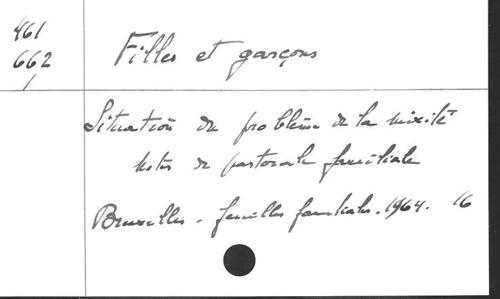 461
662
/
Filles et garçons
Situation du problème de la mixité
Notes de pastorale familiale
Bruxelles. feuilles familiales. 1964. 16